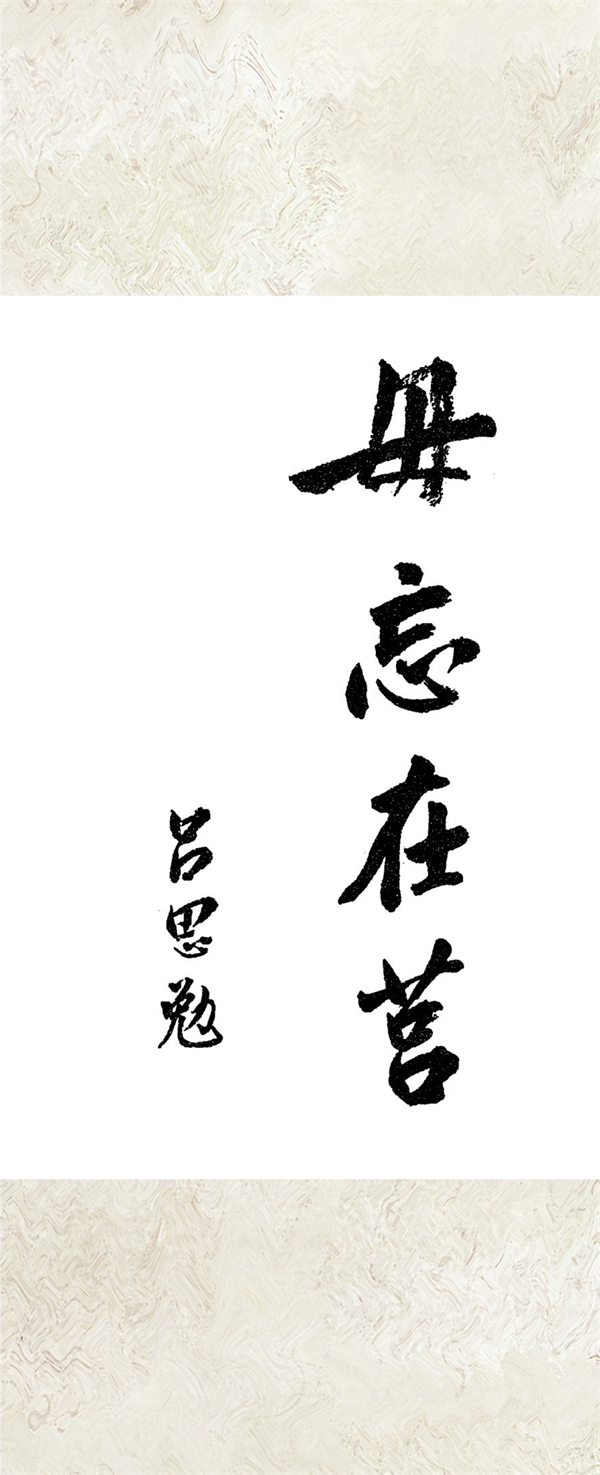 毋忘在莒
吕思勉